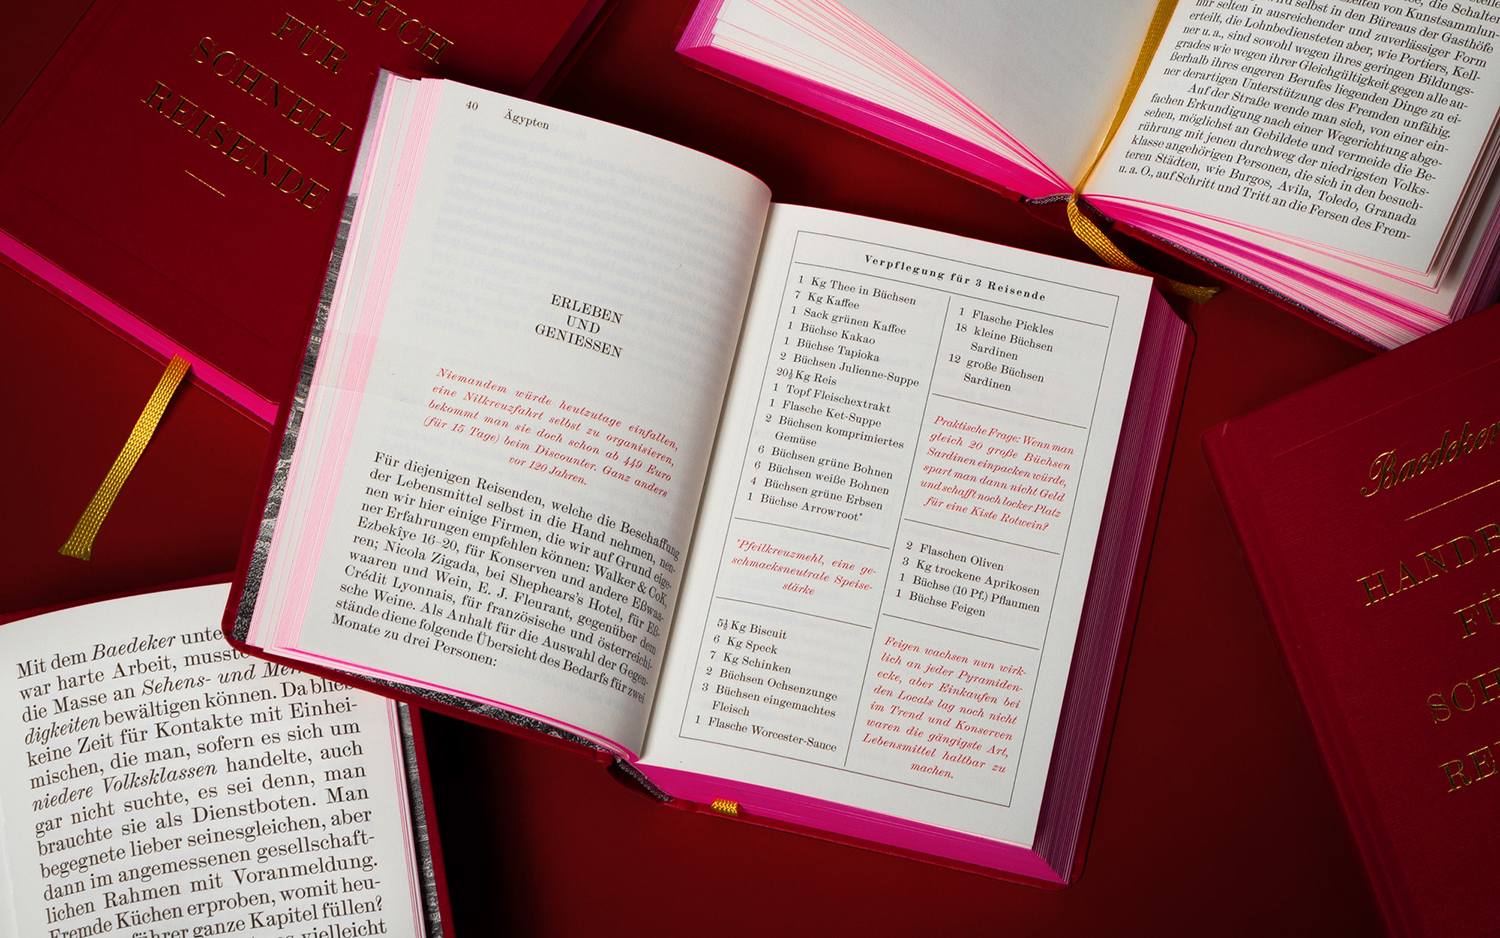 FÜR
SCHNELL
REISENDE
40
Ägypten
ERLEBEN
UND
GENIESSEN
Niemandem würde heutzutage einfallen,
eine Nilkreuzfahrt selbst zu organisieren,
bekommt man sie doch schon ab 449 Euro
(für 15 Tage) beim Discounter. Ganz anders
vor 120 Jahren.
Für diejenigen Reisenden, welche die Beschaffung
der Lebensmittel selbst in die Hand nehmen, nen-
nen wir hier einige Firmen, die wir auf Grund eige-
ner Erfahrungen empfehlen können: Walker & Cok,
Ezbekîye 16–20, für Konserven und andere Eßwa-
ren; Nicola Zigada, bei Shephears's Hotel, für Eß-
waaren und Wein, E. J. Fleurant, gegenüber dem
Crédit Lyonnais, für französische und österreichi-
sche Weine. Als Anhalt für die Auswahl der Gegen-
stände diene folgende Übersicht des Bedarfs für zwei
Monate zu drei Personen:
Verpflegung für 3 Reisende
1 Kg Thee in Büchsen
7 Kg Kaffee
1 Sack grünen Kaffee
1 Büchse Kakao
1 Büchse Tapioka
2 Büchsen Julienne-Suppe
20½ Kg Reis
1 Topf Fleischextrakt
1 Flasche Ket-Suppe
2 Büchsen komprimiertes
Gemüse
6 Büchsen grüne Bohnen
6 Büchsen weiße Bohnen
4 Büchsen grüne Erbsen
1 Büchse Arrowroot*
*Pfeilkreuzmehl, eine ge-
schmacksneutrale Speise-
stärke
5½ Kg Biscuit
6 Kg Speck
7 Kg Schinken
2 Büchsen Ochsenzunge
3 Büchsen eingemachtes
Fleisch
1 Flasche Worcester-Sauce
1 Flasche Pickles
18 kleine Büchsen
Sardinen
12 große Büchsen
Sardinen
Praktische Frage: Wenn man
gleich 20 große Büchsen
Sardinen einpacken würde,
spart man dann nicht Geld
und schafft noch locker Platz
für eine Kiste Rotwein?
2 Flaschen Oliven
3 Kg trockene Aprikosen
1 Büchse (10 Pf.) Pflaumen
1 Büchse Feigen
Feigen wachsen nun wirk-
lich an jeder Pyramiden-
ecke, aber Einkaufen bei
den Locals lag noch nicht
im Trend und Konserven
waren die gängigste Art,
Lebensmittel haltbar zu
machen.
wird selbst in den Büreaus der Gasthöfe
nur selten in ausreichender und zuverlässiger Form
erteilt, die Lohnbediensteten aber, wie Portiers, Kell-
ner u. a., sind sowohl wegen ihres geringen Bildungs-
grades wie wegen ihrer Gleichgültigkeit gegen alle au-
ßerhalb ihres engeren Berufes liegenden Dinge zu ei-
ner derartigen Unterstützung des Fremden unfähig.
Auf der Straße wende man sich, von einer ein-
fachen Erkundigung nach einer Wegerichtung abge-
sehen, möglichst an Gebildete und vermeide die Be-
rührung mit jenen durchweg der niedrigsten Volks-
klasse angehörigen Personen, die sich in den besuch-
teren Städten, wie Burgos, Avila, Toledo, Granada
u. a. O., auf Schritt und Tritt an die Fersen des Frem-
Mit dem Baedeker
war harte Arbeit, musste
die Masse an Sehens- und
digkeiten bewältigen können. Da blieb
keine Zeit für Kontakte mit Einhei-
mischen, die man, sofern es sich um
niedere Volksklassen handelte, auch
gar nicht suchte, es sei denn, man
brauchte sie als Dienstboten. Man
begegnete lieber seinesgleichen, aber
dann im angemessenen gesellschaft-
lichen Rahmen mit Voranmeldung.
Fremde Küchen erproben, womit heu-
ganze Kapitel füllen?
vielleicht
Baedeker